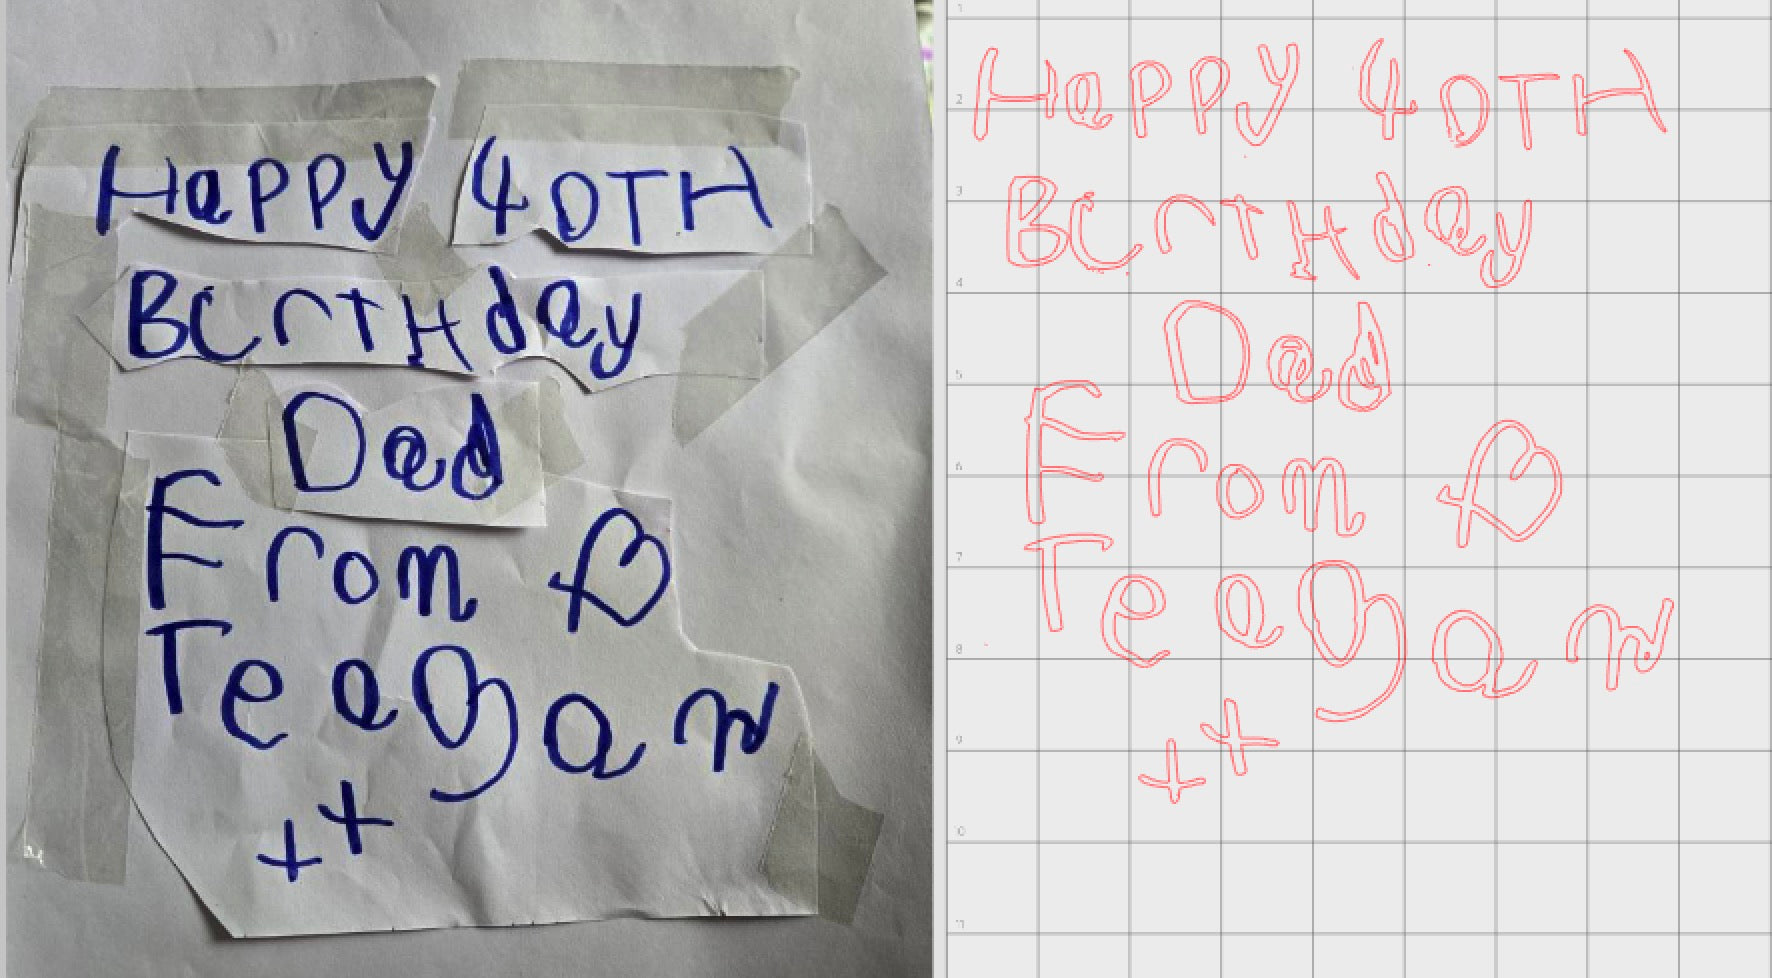 Happy 40TH
BCrTHday
Dad
From
Teagan
++
1
Happy 40TH
2
3
BCrTHday
4
Dad
5
From
6
7
Teagan
8
++
9
10
11